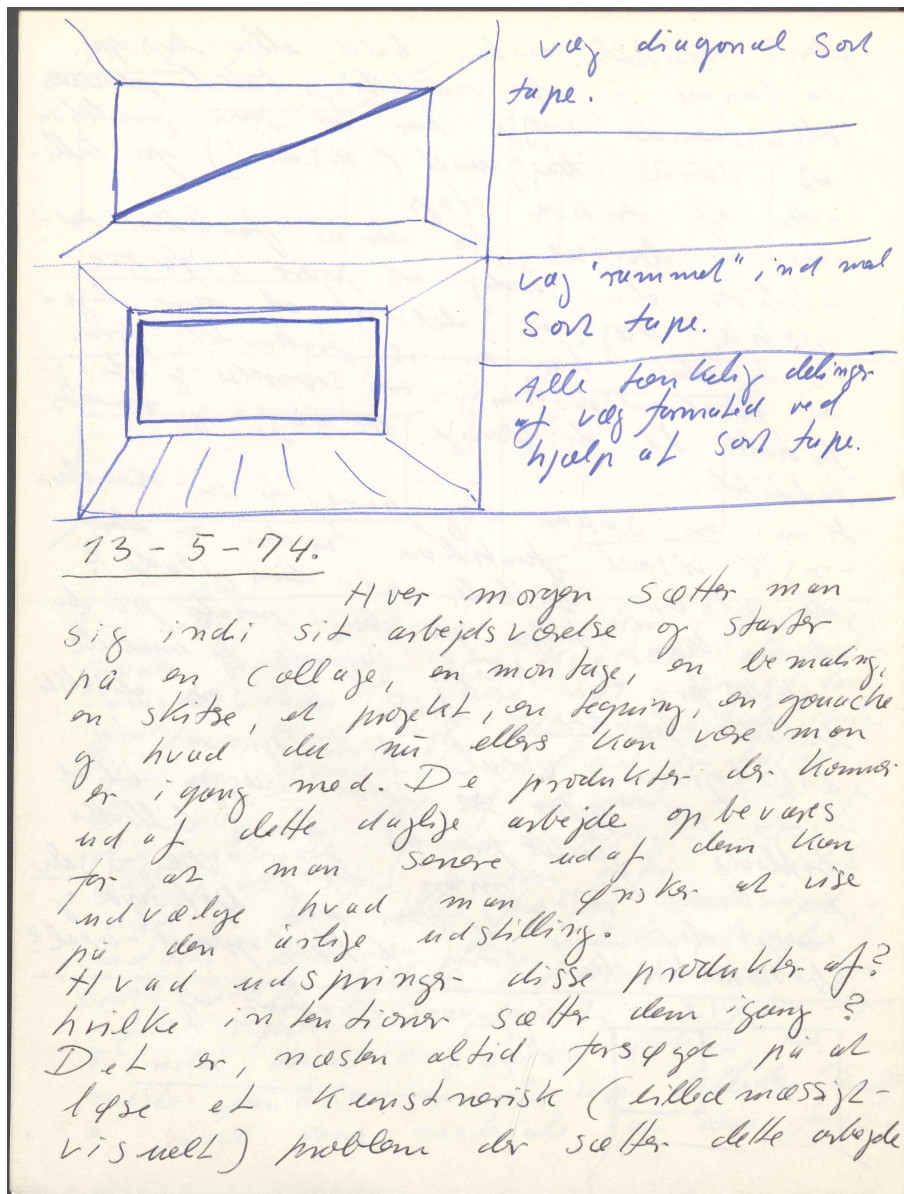 væg diagonal sort
tape.
væg "rammet" ind med
sort tape.
Alle tænkelig delinger
af væg formatet ved
hjælp af sort tape.
13-5-74.
Hver morgen sætter man
sig ind i sit arbejdsværelse og starter
på en collage, en montage, en bemaling,
en skitse, et projekt, en tegning, en gouache
og hvad det nu ellers kan være man
er igang med. De produkter der kommer
ud af dette daglige arbejde opbevares
for at man senere ud af dem kan
udvælge hvad man ønsker at vise
på den årlige udstilling.
Hvad udspringer disse produkter af?
hvilke intentioner sætter dem igang?
Det er, næsten altid forsøget på at
løse et kunstnerisk (billedmæssigt-
visuelt) problem der sætter dette arbejde